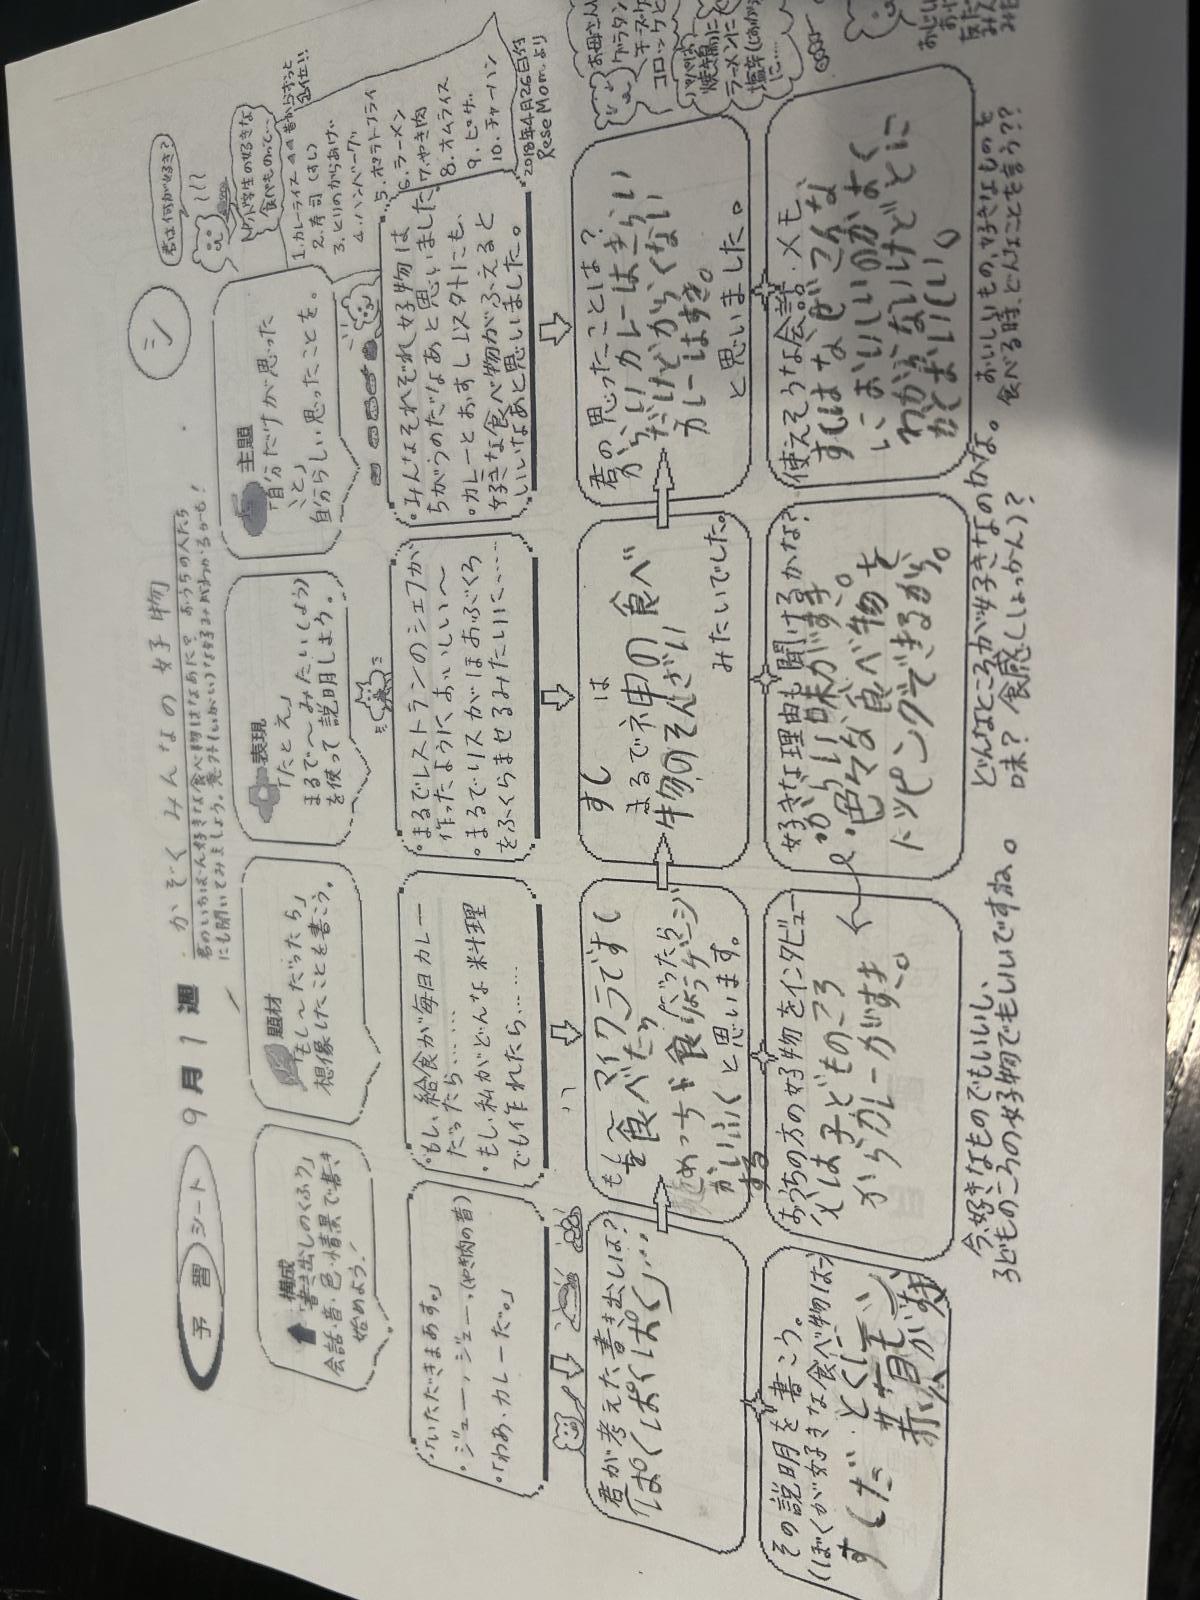 予習シート
9月1週
かぞくみんなの好物
君のいちばん好きな食べ物はなあに? おうちの人たち
にも聞いてみましょう。意外(いがい)な好みがわかるかも!
シ
構成
「書き出しのくふう」
会話・音・色・情景で書き
始めよう!
題材
「もし〜だったら」
想像したことを書こう。
表現
「たとえ」
まるで〜みたい(よう)
を使って説明しよう。
主題
「自分だけが思った
こと」
自分らしい思ったことを。
君は何が好き?
小学生の好きな
食べものって…
1.カレーライス
昔からずっと
1位!!
2.寿司(すし)
3.とりのからあげ
4.ハンバーグ
5.ポテトフライ
6.ラーメン
7.やき肉
8.オムライス
9.ピザ
10.チャーハン
2018年4月26日付
ReseMomより
・「いただきまあす。」
・ジューー、ジューー、(やき肉の音)
・「わあ、カレーだ。」
・もし、給食が毎日カレー
だったら……
・もし、私がどんな料理
でも作れたら……
・まるでレストランのシェフが
作ったように、おいしい〜
・まるでリスがほおぶくろ
をふくらませるみたいに……
・みんなそれぞれ好物は
ちがうのだなあと思いました。
・カレーとおすし以外にも、
好きな食べ物がふえると
いいなあと思いました。
君が考えた書き出しは?
「ぱくぱくぱく」…
もし、マイクラですし
を食べたら
めっちゃ食りょうゲージ
だったら
かいふく
する
と思います。
すし は
まるで神の食べ
物のそんざい
みたいでした。
君の思ったことは?
からいカレーはきらい
だけどからくない
カレーはすき。
と思いました。
お母さん
グラタン
チーズ
コロッケ
パパは
焼き鳥に
ラーメンに
塩辛(しおから)
に……
その説明を書こう。
(ぼくが好きな食べ物は)
すしだ。とくに、
赤身が
おうちの方の好物をインタビュー
父は子どものころ
からカレーがすき。
好きな理由も聞けるかな?
・からい味がすき。
・色々な食べ物を
トッピングできるから。
使えそうな会話・メモ
すしはなぜこんな
においしいのかよく
わからないけどとに
かくおいしい。
今、好きなものでもいいし、
子どものころの好物でもいいですね。
どんなところが好きなのかな。
味? 食感(しょっかん)?
おいしいもの、好きなものを
食べる時、どんなことを言う??